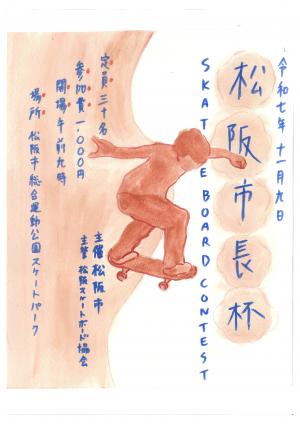 令和七年十一月九日
松阪市長杯
SKATEBOARD CONTEST
定員三十名
参加費一,000円
開場午前九時
場所 松阪市総合運動公園スケートパーク
主催松阪市
主管 松阪スケートボード協会